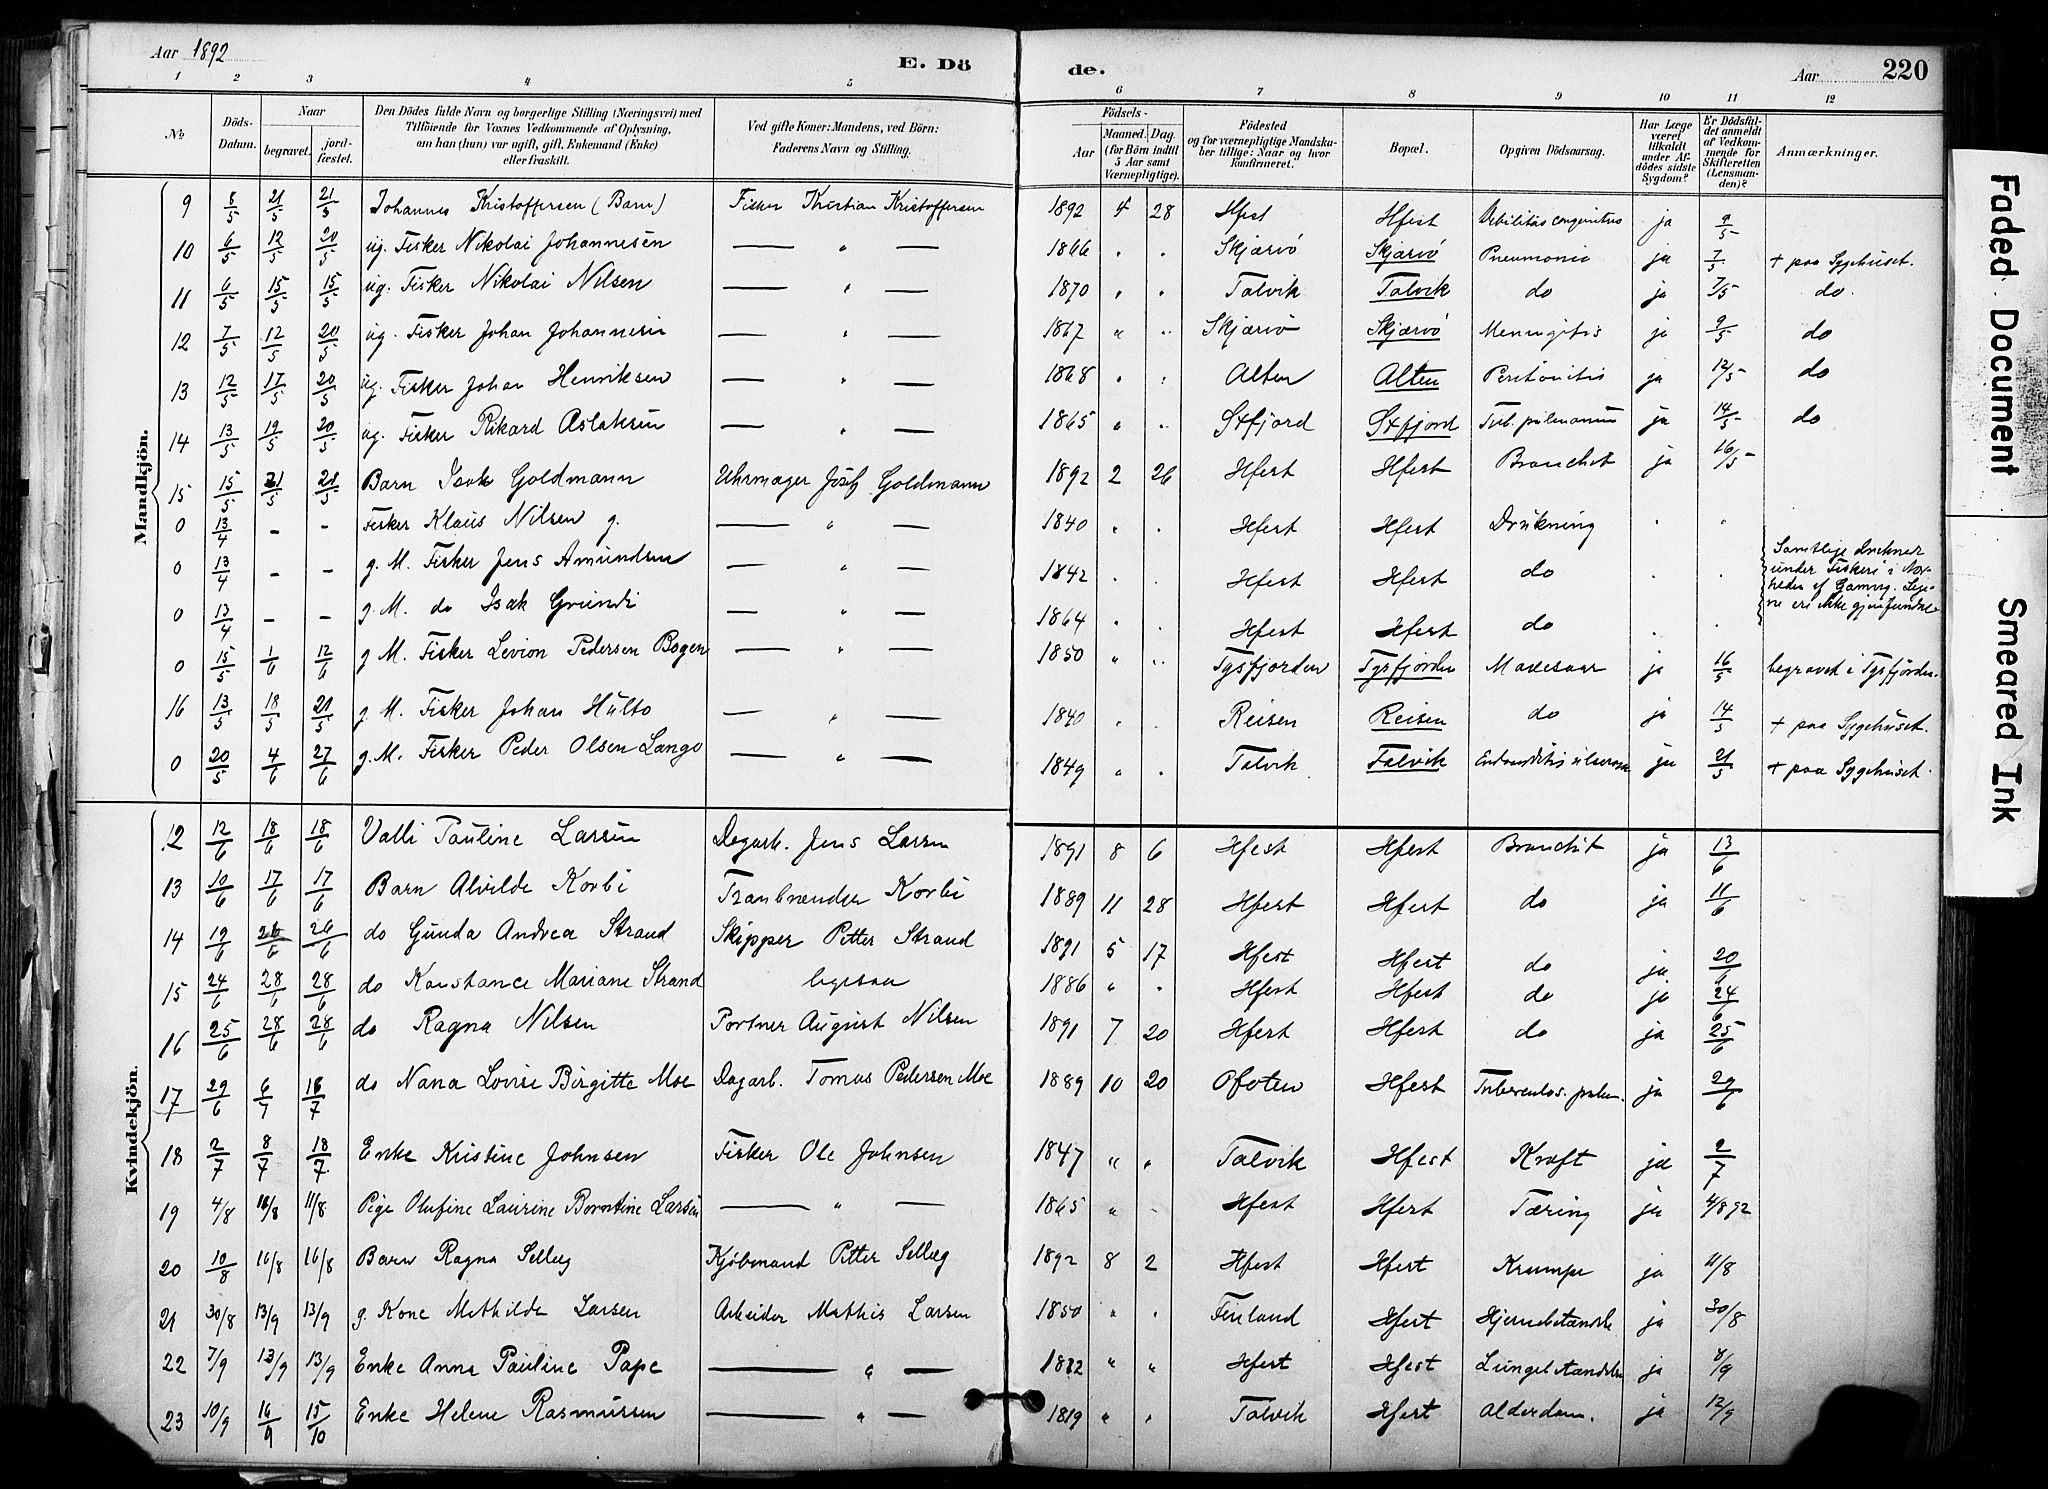 Aar 1892
E. Dö
de.
Aar
220
1 2 3 4 5 6 7 8 9 10 11 12
No
Döds-Datum.
Naar
begravet.
jord-fæstet.
Den Dödes fulde Navn og borgerlige Stilling (Næringsvei) med
Tilföiende for Voxnes Vedkommende af Oplysning,
om han (hun) var ugift, gift, Enkemand (Enke)
eller fraskilt.
Ved gifte Koner: Mandens, ved Börn:
Faderens Navn og Stilling.
Födsels-
Aar
Maaned. Dag.
(for Börn indtil 5 Aar samt Værnepligtige).
Födested
og for værnepligtige Mandska-
ber tillige: Naar og hvor
konfirmeret.
Bopæl.
Opgiven Dödsaarsag.
Har Læge været tilkaldt under Afdödes sidste Sygdom?
Er Dödsfaldet anmeldt af Vedkommende for Skifteretten (Lensmanden)?
Anmærkninger.
Mandkjön.
9 8/5 21/5 21/5 Johannes Kristoffersen (Barn) Fisker Kristian Kristoffersen 1892 4 28 Hfest Hfest Debilitas congenitus ja 9/5
10 6/5 12/5 20/5 ug. Fisker Nikolai Johannesen — " — 1866 " " Skjærvö Skjærvö Pneumonie ja 7/5 + paa Sygehuset.
11 6/5 15/5 15/5 ug. Fisker Nikolai Nilsen — " — 1870 " " Talvik Talvik do ja 7/5 do.
12 7/5 12/5 20/5 ug. Fisker Johan Johannesen — " — 1867 " " Skjærvö Skjærvö Meningitis ja 9/5 do
13 12/5 17/5 20/5 ug. Fisker Johan Henriksen — " — 1868 " " Alten Alten Peritonitis ja 12/5 do
14 13/5 19/5 20/5 ug. Fisker Rikard Aslaksen — " — 1865 " " Oxfjord Oxfjord Tub. pulmonum ja 14/5 do
15 15/5 21/5 21/5 Barn Isak Goldmann Uhrmager Josef Goldmann 1892 2 26 Hfest Hfest Bronchit ja 16/5
0 13/4 - - Fisker Klaus Nilsen g. — " — 1840 " " Hfest Hfest Drukning " "
0 13/4 - - g. M. Fisker Jens Amundsen — " — 1842 " " Hfest Hfest do " "
Samtlige druknede
under Fiskeri i Nær-
heden af Gamvig. Lige-
ne ere ikke gjenfundet
0 13/4 - - g. M. do Isak Grundi — " — 1864 " " Hfest Hfest do " "
0 15/5 1/6 12/6 g. M. Fisker Levion Pedersen Bogen — " — 1850 " " Tysfjorden Tysfjorden Mavesaar ja 16/5 begravet i Tysfjorden.
16 13/5 18/5 21/5 g. M. Fisker Johan Hulto — " — 1840 " Reisen Reisen do ja 14/5 + paa Sygehuset.
0 20/5 4/6 27/6 g. M. Fisker Peder Olsen Langö — " — 1849 " " Talvik Talvik Endocarditis ulcerosa ja 21/5 + paa Sygehuset.
Kvindekjön.
12 12/6 18/6 18/6 Valli Pauline Larsen Dagarb. Jens Larsen 1891 8 6 Hfest Hfest Bronchit ja 13/6
13 10/6 17/6 17/6 Barn Alvilde Korbi Tranbrænder Korbi 1889 11 28 Hfest Hfest do ja 11/6
14 19/6 26/6 26/6 do Gunda Andrea Strand Skipper Petter Strand 1891 5 17 Hfest Hfest do ja 20/6
15 24/6 28/6 28/6 do Konstance Mariane Strand ligesaa 1886 " " Hfest Hfest do ja 24/6
16 25/6 28/6 28/6 do Ragna Nilsen Portner August Nilsen 1891 7 20 Hfest Hfest do ja 25/6
17 29/6 6/7 18/7 do Nana Lovise Birgitte Moe Dagarb. Tomas Pedersen Moe 1889 10 20 Ofoten Hfest Tuberculos. pulm. ja 29/6
18 2/7 8/7 18/7 Enke Kristine Johnsen Fisker Ole Johnsen 1847 " " Talvik Hfest Kræft ja 2/7
19 4/8 11/8 11/8 Pige Olufine Laurine Berntine Larsen — " — 1865 " " Hfest Hfest Tæring ja 4/8 92
20 10/8 16/8 16/8 Barn Ragna Selleg Kjöbmand Petter Selleg 1892 8 2 Hfest Hfest Krampe ja 11/8
21 30/8 13/9 13/9 g. Kone Mathilde Larsen Arbeider Mathis Larsen 1850 " " Finland Hfest Hjernebetændelse ja 30/8
22 7/9 13/9 13/9 Enke Anna Pauline Pape — " — 1822 " " Hfest Hfest Lungebetændelse ja 8/9
23 10/9 16/9 15/10 Enke Helene Rasmussen — " — 1819 " " Talvik Hfest Alderdom. ja 12/9
Faded Document
Smeared Ink